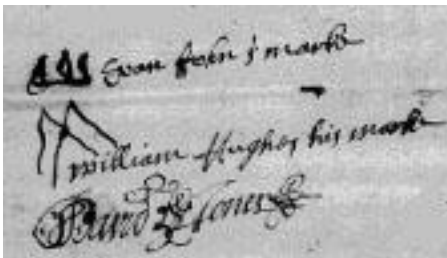 Evan John's marke
William Hughes his marke
David Jones